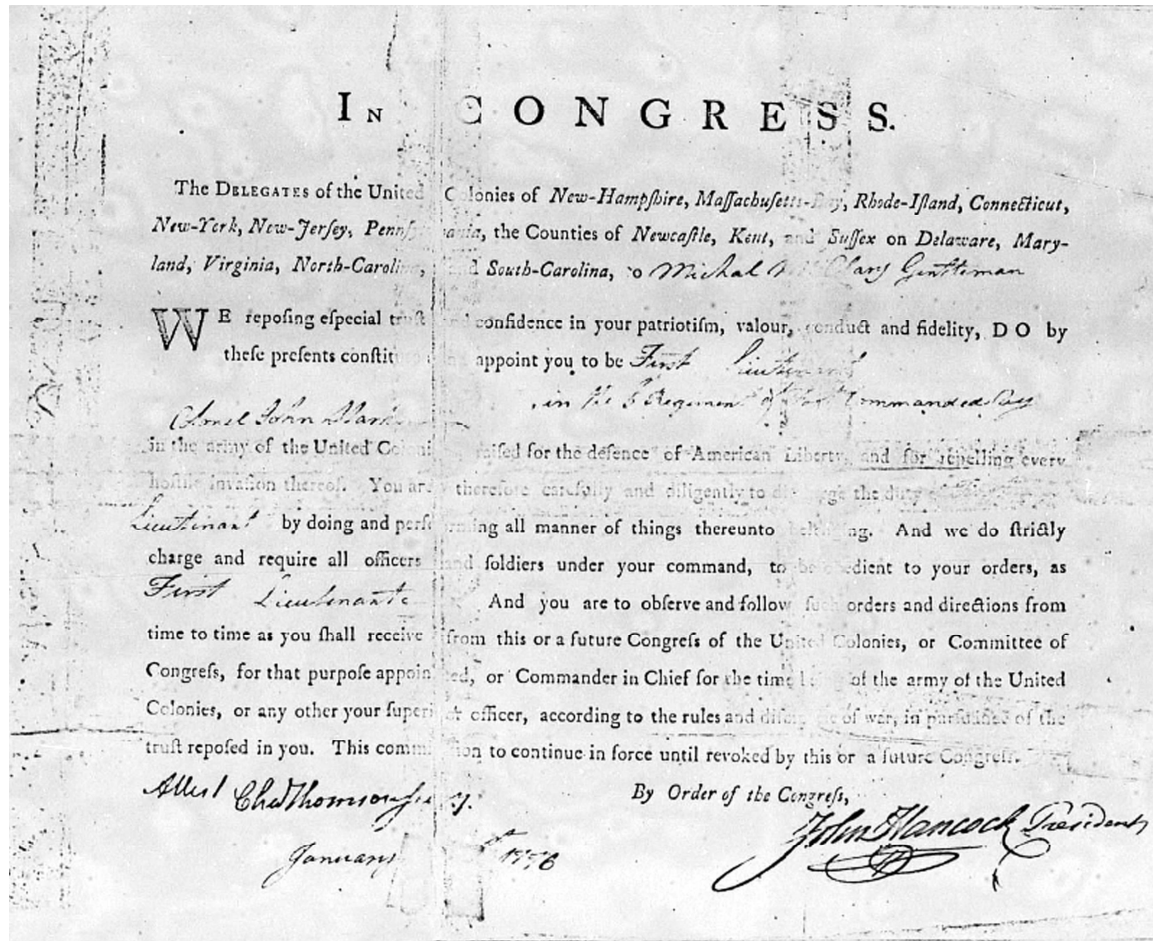 IN CONGRESS.
The DELEGATES of the United Colonies of New-Hampſhire, Maſſachuſetts-Bay, Rhode-Iſland, Connecticut,
New-York, New-Jerſey, Pennſylvania, the Counties of Newcaſtle, Kent, and Suſſex on Delaware, Mary-
land, Virginia, North-Carolina, and South-Carolina, to Michal McClary Gentleman
WE repoſing eſpecial truſt and confidence in your patriotiſm, valour, conduct and fidelity, DO by
theſe preſents conſtitute and appoint you to be First Lieutenant
in the 5 Regiment of Foot Commanded by
Colonel John Stark
in the army of the United Colonies raiſed for the defence of American Liberty, and for repelling every
hoſtile invaſion thereof. You are therefore carefully and diligently to diſcharge the duty of First
Lieutenant by doing and performing all manner of things thereunto belonging. And we do ſtrictly
charge and require all officers and ſoldiers under your command, to be obedient to your orders, as
First Lieutenant And you are to obſerve and follow ſuch orders and directions from
time to time as you ſhall receive from this or a future Congreſs of the United Colonies, or Committee of
Congreſs, for that purpoſe appointed, or Commander in Chief for the time being of the army of the United
Colonies, or any other your ſuperior officer, according to the rules and diſcipline of war, in purſuance of the
truſt repoſed in you. This commiſſion to continue in force until revoked by this or a future Congreſs.
By Order of the Congreſs,
Attest Cha Thomson Secy.
John Hancock President
January 1776